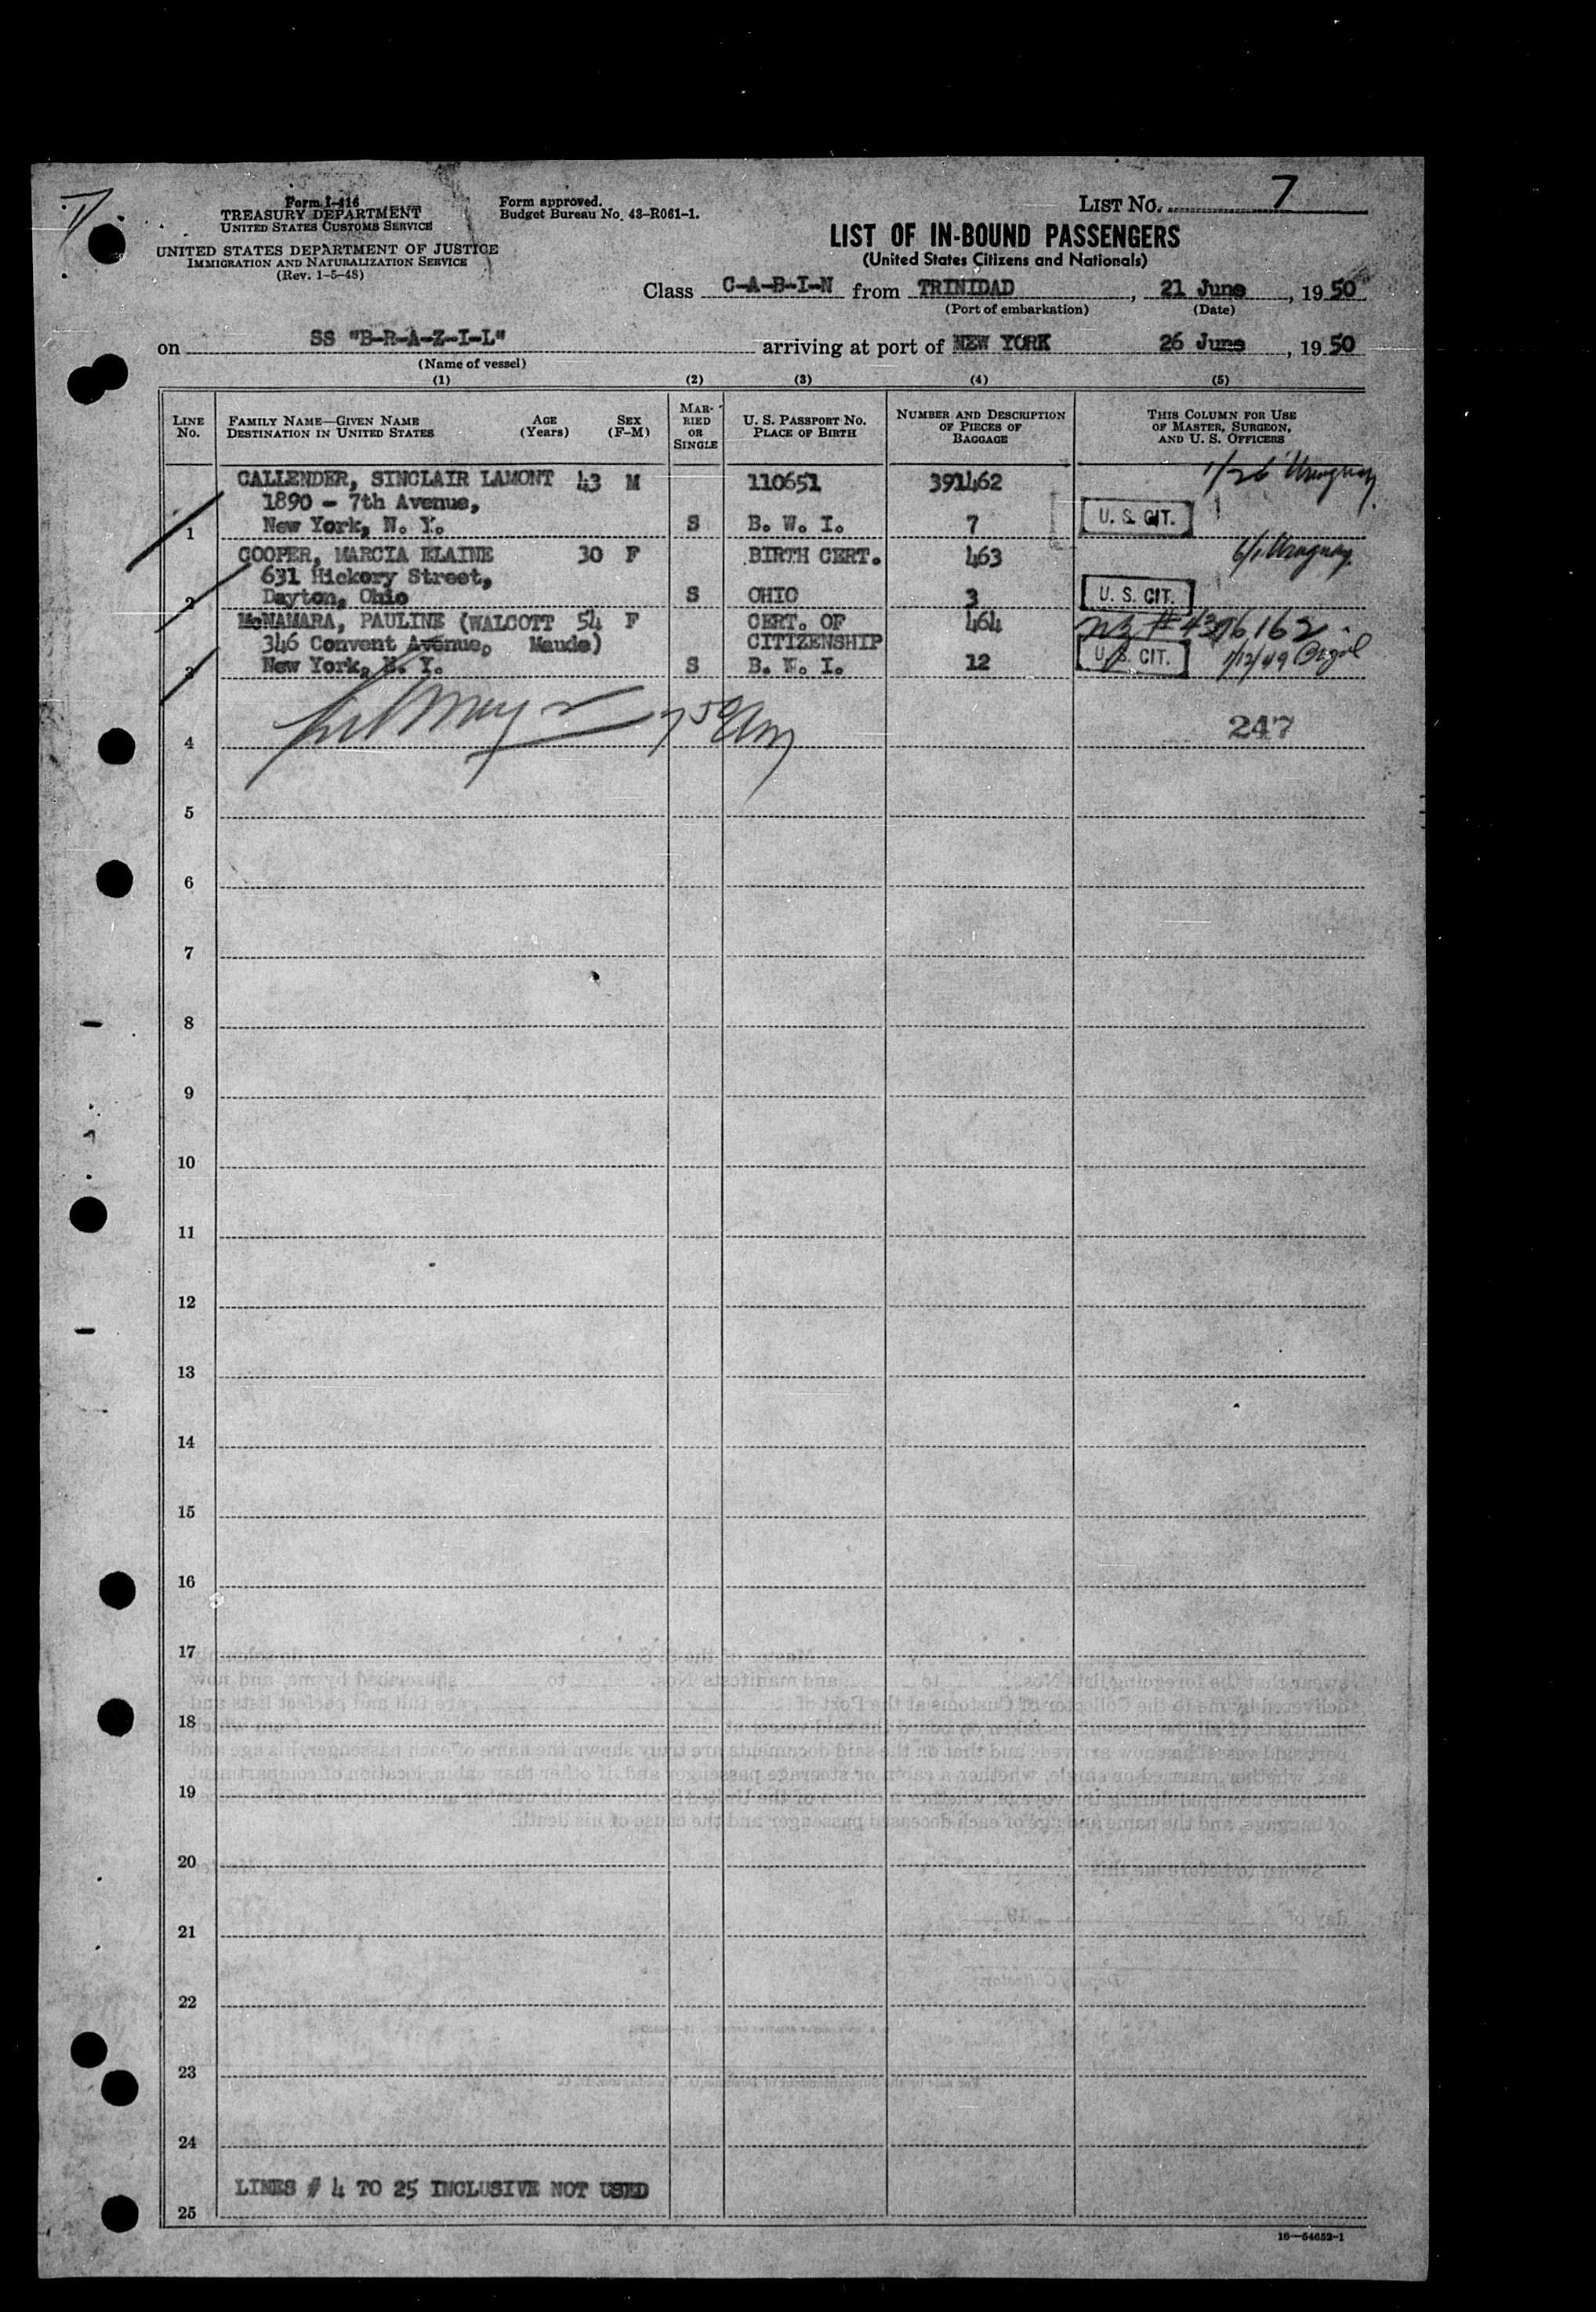 7
Form I-416
TREASURY DEPARTMENT
UNITED STATES CUSTOMS SERVICE
UNITED STATES DEPARTMENT OF JUSTICE
IMMIGRATION AND NATURALIZATION SERVICE
(Rev. 1-5-48)
Form approved.
Budget Bureau No. 43-R061-1.
LIST No. 7
LIST OF IN-BOUND PASSENGERS
(United States Citizens and Nationals)
Class C-A-B-I-N from TRINIDAD, 21 June, 1950
(Port of embarkation) (Date)
on SS "B-R-A-Z-I-L" arriving at port of NEW YORK 26 June, 1950
(Name of vessel)
(1) (2) (3) (4) (5)
LINE No.
FAMILY NAME—GIVEN NAME
DESTINATION IN UNITED STATES
AGE (Years)
SEX (F-M)
MARRIED OR SINGLE
U. S. PASSPORT No.
PLACE OF BIRTH
NUMBER AND DESCRIPTION
OF PIECES OF
BAGGAGE
THIS COLUMN FOR USE
OF MASTER, SURGEON,
AND U. S. OFFICERS
CALLENDER, SINCLAIR LAMONT 43 M 110651 391462 1/26 Uruguay
1890 - 7th Avenue,
1 New York, N. Y. S B. W. I. 7 U. S. CIT.
COOPER, MARCIA ELAINE 30 F BIRTH CERT. 463 6/1 Uruguay
631 Hickory Street,
2 Dayton, Ohio S OHIO 3 U. S. CIT.
McNAMARA, PAULINE (WALCOTT 54 F CERT. OF 464
346 Convent Avenue, Maude) CITIZENSHIP
3 New York, N. Y. S B. W. I. 12 U. S. CIT. 1/12/49
4 247
5
6
7
8
9
10
11
12
13
14
15
16
17
18
19
20
21
22
23
24
LINES # 4 TO 25 INCLUSIVE NOT USED
25
16—54652-1